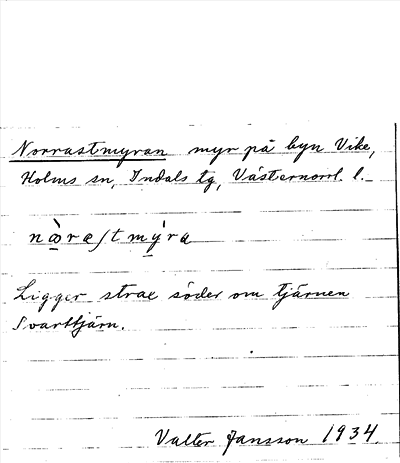 Norrastmyran myr på byn Vike,
Holms sn, Indals tg, Västernorrl. l.
nòræʃtmýra
Ligger strax söder om tjärnen
Svarttjärn.
Valter Jansson 1934.